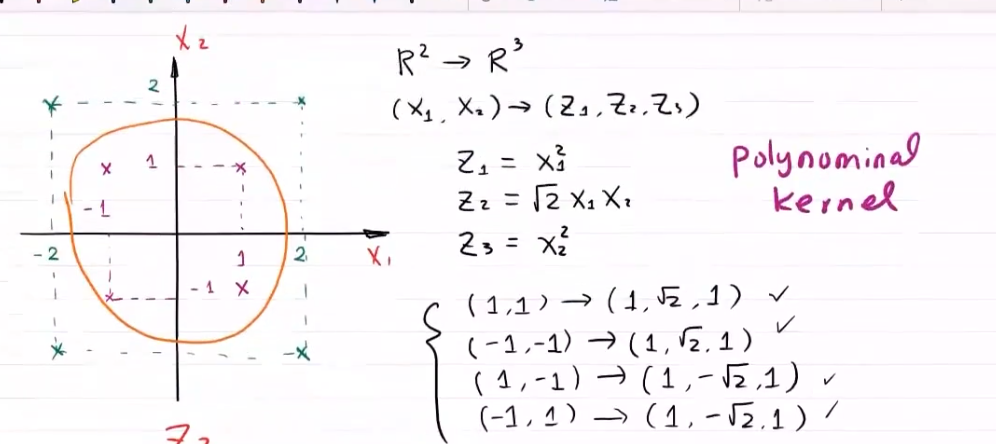 X₂
2
1
-1
-2
1
2
X₁
-1
R² → R³
(X₁, X₂) → (Z₁, Z₂, Z₃)
Z₁ = X₁²
Z₂ = √2 X₁ X₂
Z₃ = X₂²
Polynominal
kernel
(1,1) → (1,√2,1) ✓
(-1,-1) → (1,√2,1) ✓
(1,-1) → (1,-√2,1) ✓
(-1,1) → (1,-√2,1) ✓